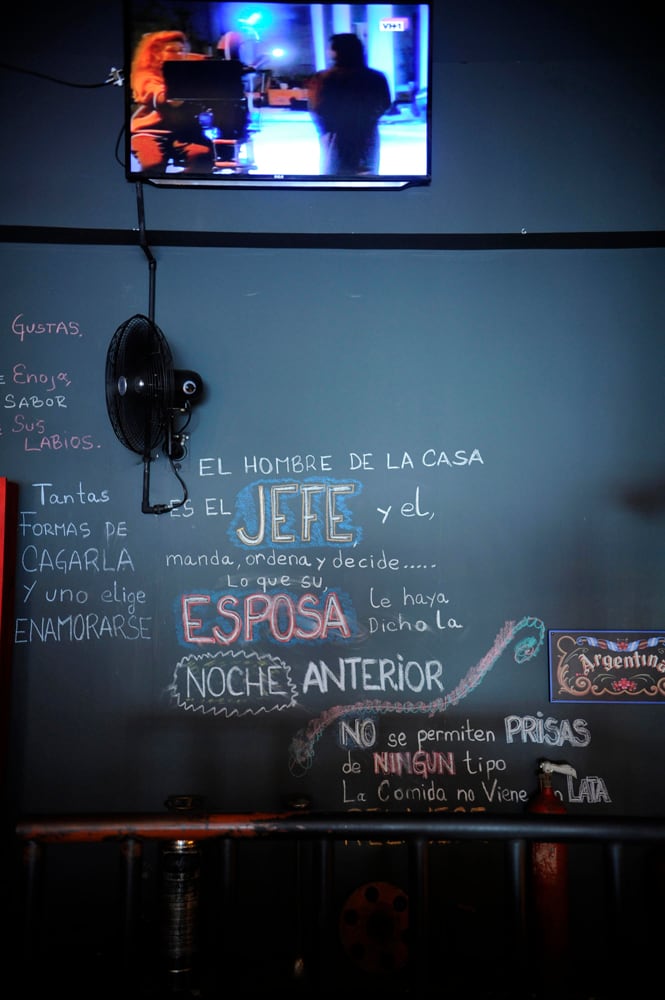 VH1
RCA
GUSTAS.
Enoja,
SABOR
SUS
LABIOS.
Tantas
FORMAS DE
CAGARLA
Y uno elige
ENAMORARSE
EL HOMBRE DE LA CASA
ES EL JEFE y el,
manda, ordena y decide.....
Lo que su,
ESPOSA le haya
Dicho la
NOCHE ANTERIOR
Argentina
NO se permiten PRISAS
de NINGUN tipo
La Comida no Viene en LATA